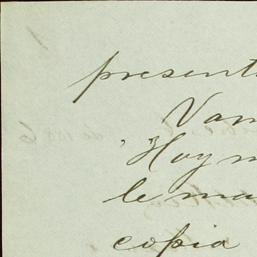 present
Vam
"Hoy m
le ma
copia